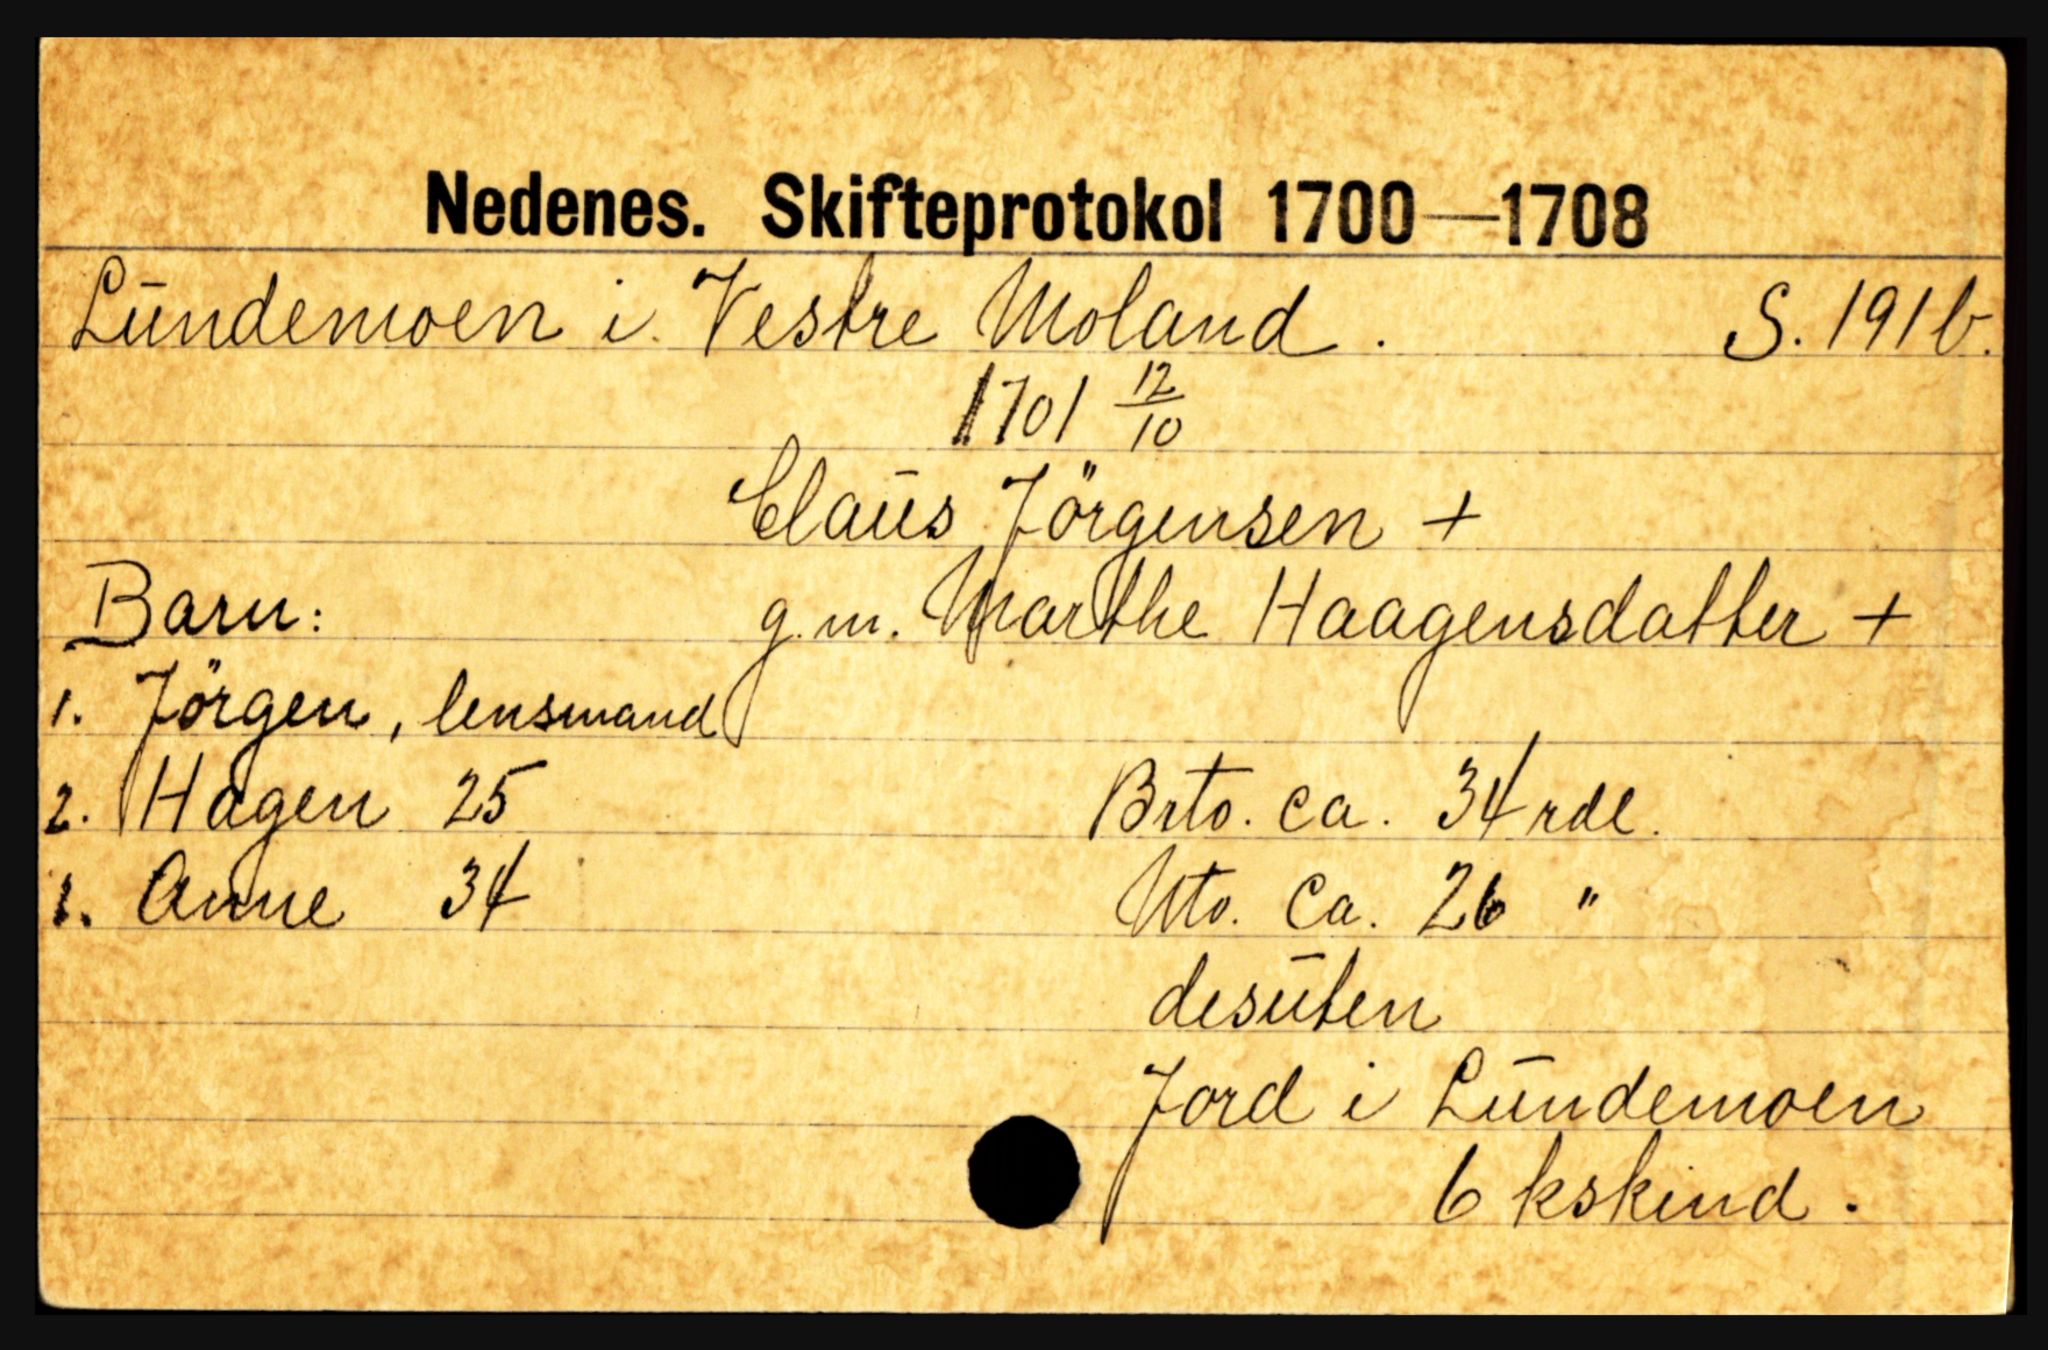 Nedenes. Skifteprotokol 1700—1708
Lundemoen i Vestre Moland. S. 191b.
1701 12/10
Claus Jörgensen +
Barn: g.m. Marthe Haagensdatter +
1. Jörgen, lensmand
2. Hagen 25 Brto. ca. 34 rdl.
1. Anne 34 Nto. ca. 26 "
desuten
Jord i Lundemoen
6 kskind.